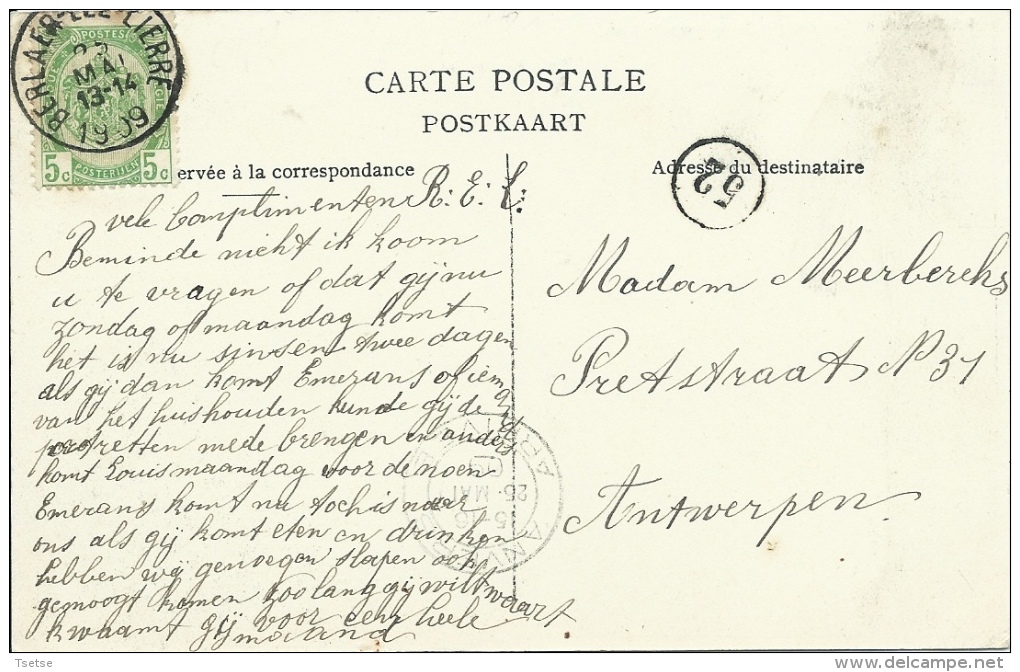 BERLAER-LEZ-LIERRE
MAI
13-14
1909
POSTES
5c POSTERIJEN 5c
CARTE POSTALE
POSTKAART
ervée à la correspondance
Adresse du destinataire
92
vele Complimenten R: E: L:
Beminde nicht ik koom
u te vragen of dat gij nu
zondag of maandag komt
het is nu sinsen twee dagen
als gij dan komt Emerans of iemand
van het huishouden kunde gij de
mede brengen en anders
komt Louis maandag voor de noen
Emerans komt nu toch is naar
ons als gij komt eten en drinken
hebben wij genoegen slapen ook
gemoogt komen zoolang gij wilt waart
kwaamt gij voor eenheele
maand
Madam Meerberchs
Pretstraat N 31
Antwerpen
ANVERS
25 MAI
15-16
Tsetse
www.delcampe.net